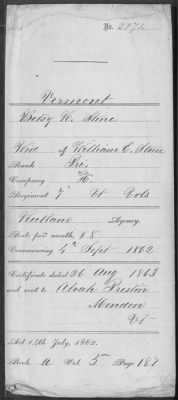 No. 2874
Vermont
Betsy R. Stone
Wid of William C. Stone
Rank Pri.
Company "H"
Regiment 7" Vt Vols
Rutland Agency.
Rate per month, $8
Commencing 4th Sept 1862
Certificate dated 26 Aug 1863
and sent to Alvah Preston
Mendon
Vt
Act 14th July, 1862.
Book A Vol. 5 Page 187